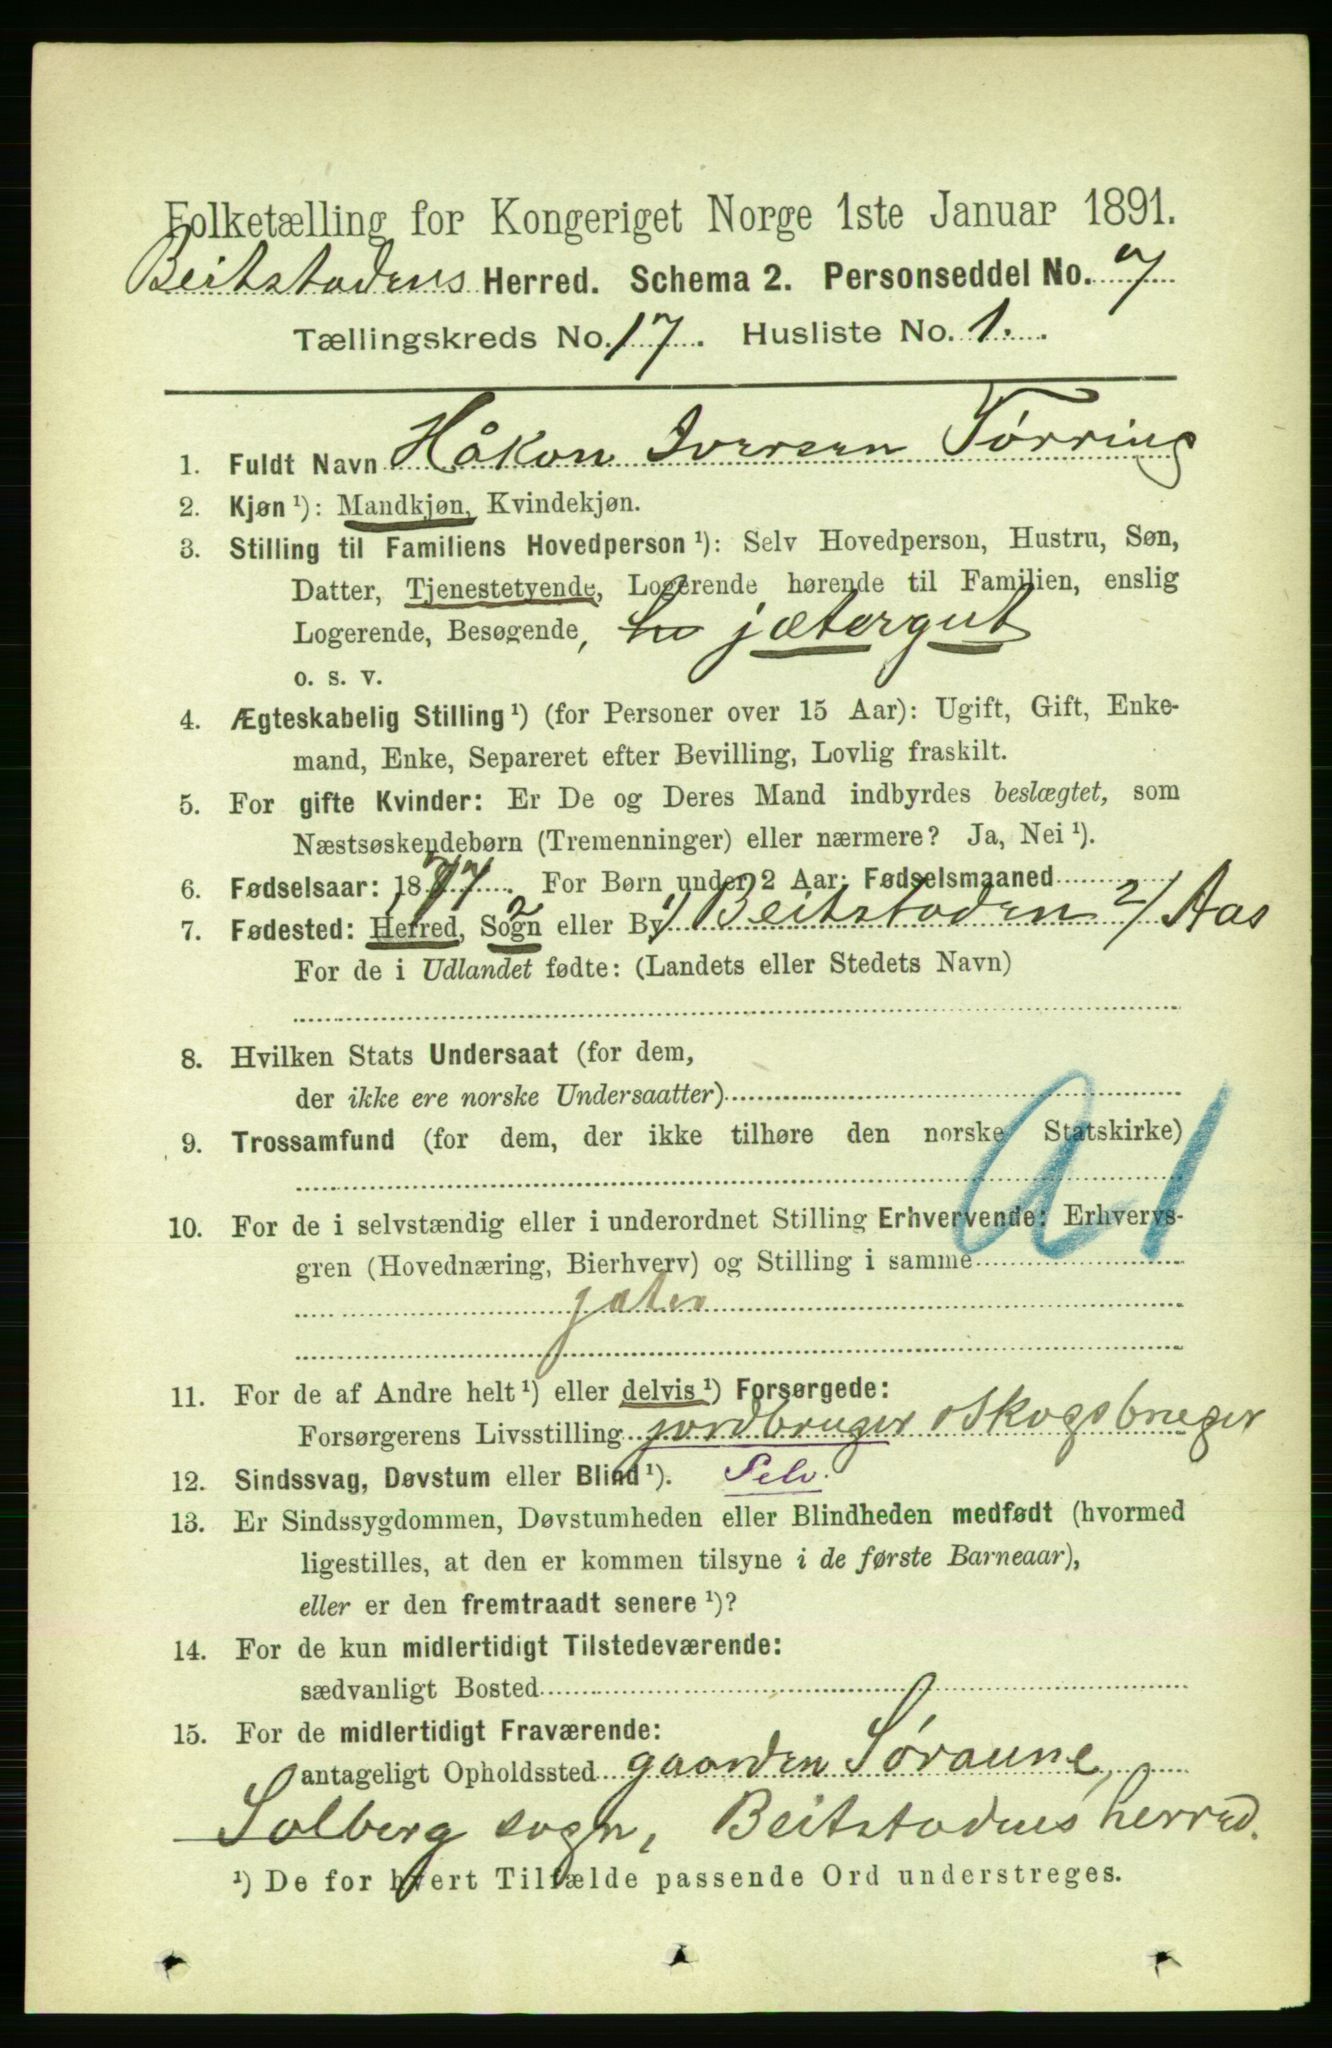 Folketælling for Kongeriget Norge 1ste Januar 1891.
Beitstadens Herred. Schema 2. Personseddel No. 7
Tællingskreds No. 17. Husliste No. 1.
1. Fuldt Navn Håkon Iversen Tørring
2. Kjøn ¹): Mandkjøn, Kvindekjøn.
3. Stilling til Familiens Hovedperson ¹): Selv Hovedperson, Hustru, Søn,
Datter, Tjenestetyende, Logerende hørende til Familien, enslig
Logerende, Besøgende, jætergut
o. s. v.
4. Ægteskabelig Stilling ¹) (for Personer over 15 Aar): Ugift, Gift, Enke-
mand, Enke, Separeret efter Bevilling, Lovlig fraskilt.
5. For gifte Kvinder: Er De og Deres Mand indbyrdes beslægtet, som
Næstsøskendebørn (Tremenninger) eller nærmere? Ja, Nei ¹).
6. Fødselsaar: 1877. For Børn under 2 Aar: Fødselsmaaned
7. Fødested: Herred, Sogn eller By 1/ Beitstaden 2/ Aas
For de i Udlandet fødte: (Landets eller Stedets Navn)
8. Hvilken Stats Undersaat (for dem,
der ikke ere norske Undersaatter)
9. Trossamfund (for dem, der ikke tilhøre den norske Statskirke)
10. For de i selvstændig eller i underordnet Stilling Erhvervende: Erhvervs-
gren (Hovednæring, Bierhverv) og Stilling i samme
jæter
11. For de af Andre helt ¹) eller delvis ¹) Forsørgede:
Forsørgerens Livsstilling jordbruger o Skogsbruger
12. Sindssvag, Døvstum eller Blind ¹). Selv.
13. Er Sindssygdommen, Døvstumheden eller Blindheden medfødt (hvormed
ligestilles, at den er kommen tilsyne i de første Barneaar),
eller er den fremtraadt senere ¹)?
14. For de kun midlertidigt Tilstedeværende:
sædvanligt Bosted
15. For de midlertidigt Fraværende:
antageligt Opholdssted gaarden Søraune,
Solberg sogn, Beitstadens herred.
¹) De for hvert Tilfælde passende Ord understreges.